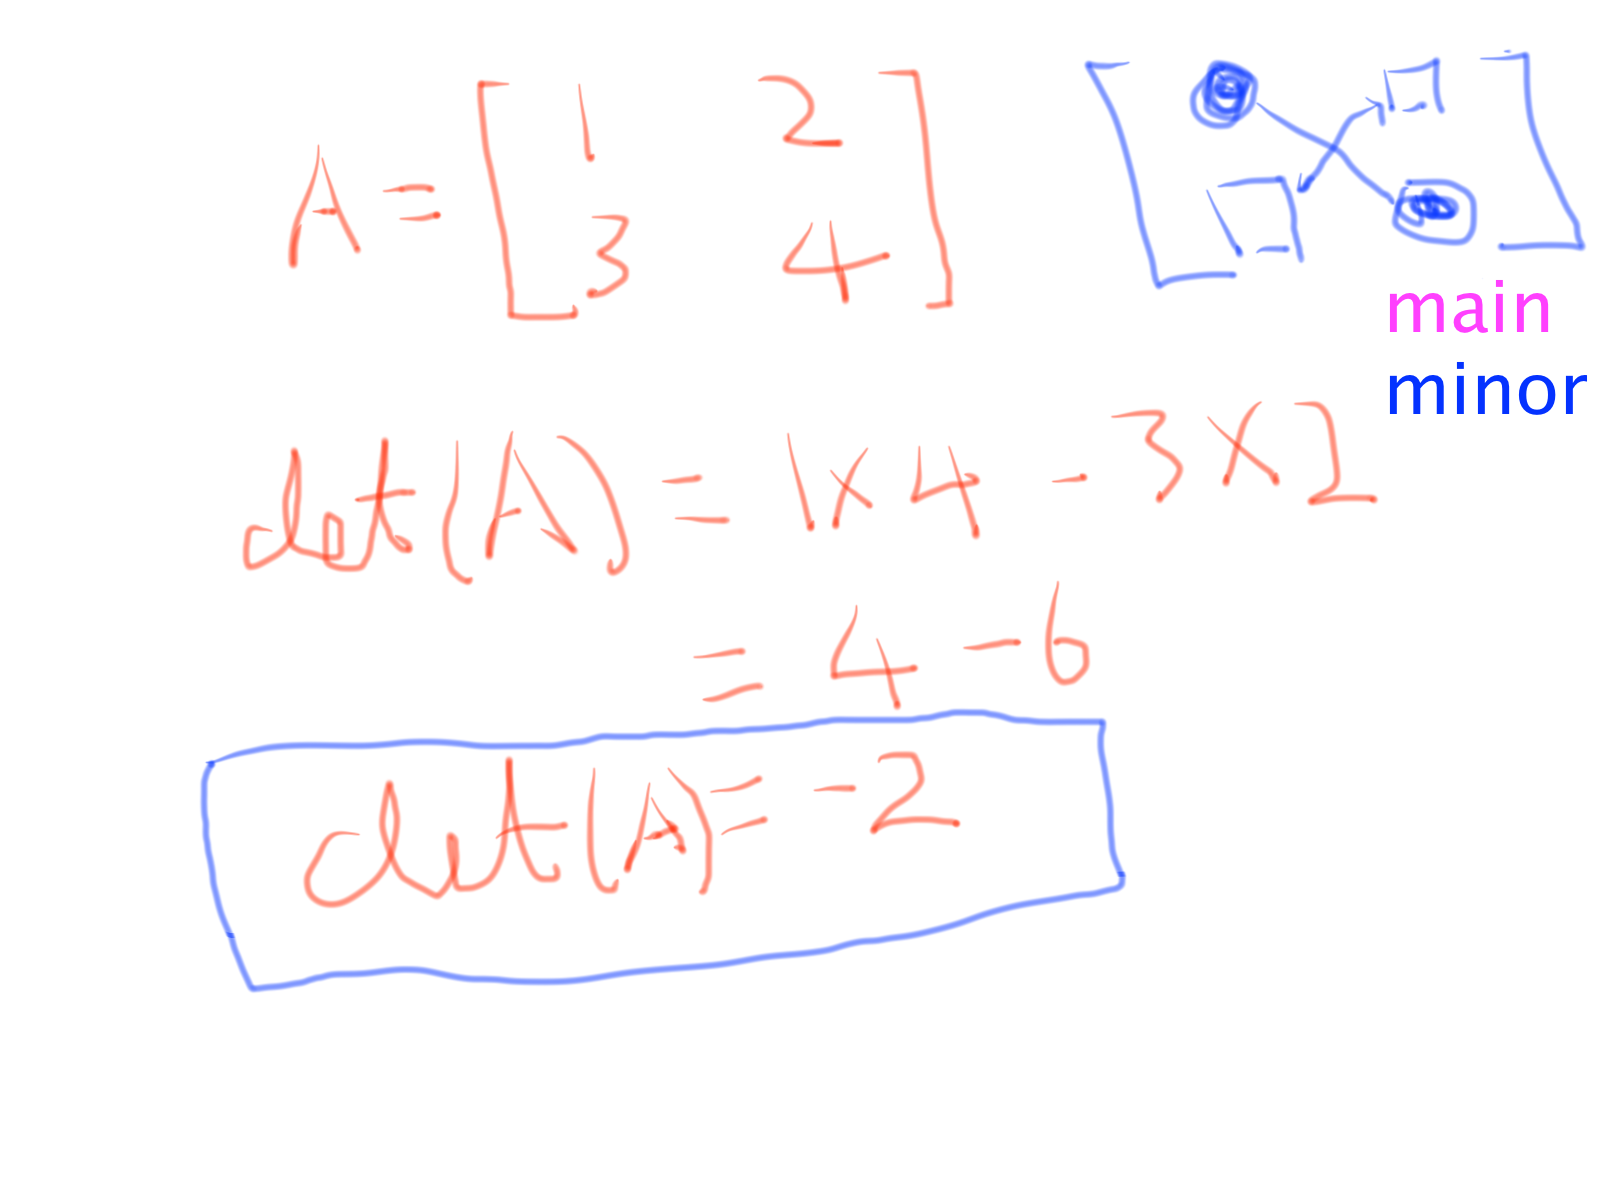 A = [ 1 2
3 4 ]
main
minor
det(A) = 1 x 4 - 3 x 2
= 4 - 6
det(A) = - 2